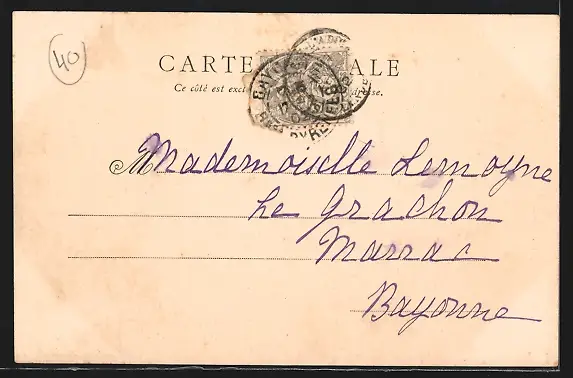 40
CARTE ALE
Ce côté est exc dresse.
Mademoiselle Lemoyne
Le Grachon
Marrac
Bayonne